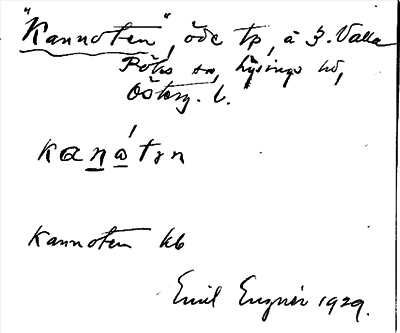 "Kannoten", öde tp, å J. Valla
Röks sn, Lysings hd,
Österg. l.
kanåtən
Kannoten kb
Emil Engnér 1929.